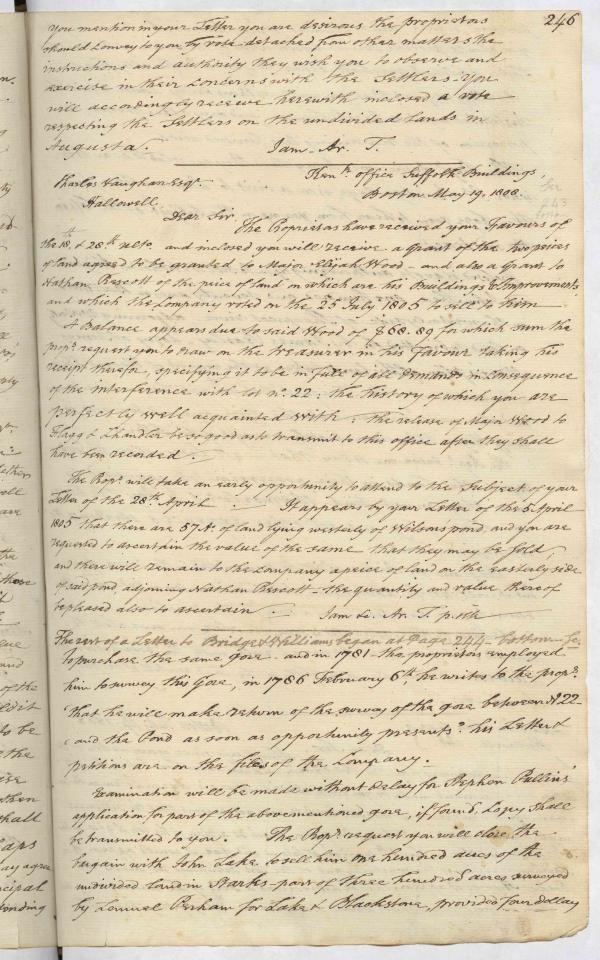 246
you mention in your Letter you are desirous the proprietors
should Convey to you by vote detached from other matters the
instructions and authority they wish you to observe and
exercise in their Concerns with the Settlers - you
will accordingly receive herewith inclosed a vote
respecting the Settlers on the undivided Lands in
Augusta.
I am - Ar. T.
Kenk. office Suffolk Buildings,
Charles Vaughan Esqr.
Boston May 19. 1808.
Hallowell.
Dear Sir.
The Proprietors have received your Favours of
the 18th & 28th ulto. and inclosed you will receive a Grant of the two peices
of land agreed to be granted to Major Elijah Wood - and also a Grant to
Nathan Prescott of the peice of land on which are his Buildings & Improvements
and which the Company voted on the 25 July 1805 to sell to him
A Balance appears due to said Wood of $68.89 for which sum the
propr. request you to draw on the treasurer in his favour taking his
receipt therefor, specifying it to be in full of all demands in Consequence
of the interference with lot no. 22: the history of which you are
perfectly well acquainted with; the release of Major Wood to
Flagg & Chandler be so good as to transmit to this office after they shall
have been recorded.
The Propr. will take an early opportunity to attend to the Subject of your
Letter of the 28th. April It appears by your Letter of the 5 April
1805 that there are 57 As. of land lying westerly of Wilsons pond and you are
requested to ascertain the value of the same that they may be sold;
and there will remain to the Company a peice of land on the easterly side
of said pond adjoining Nathan Prescott - the quantity and value thereof
be pleased also to ascertain.
I am &c. Ar. T.
The rest of a Letter to Bridge & Williams began at Page 244 bottom
to purchase the same gore and in 1781 - the proprietors employed
him to survey this Gore, in 1786 February 6th he writes to the propr.
"that he will make return of the survey of the gore between N 22
" and the Pond as soon as opportunity presents" his Letter &
petitions are on the files of the Company.
Examination will be made without delay for Stephen Pullins'
application for part of the abovementioned gore, if found. Copy shall
be transmitted to you. The Propr. request you will close the
bargain with John Lake to sell him one hundred acres of the
undivided land in Starks - part of three hundred acres surveyed
by Lemuel Perham for Lake & Blackstone, provided four dollars